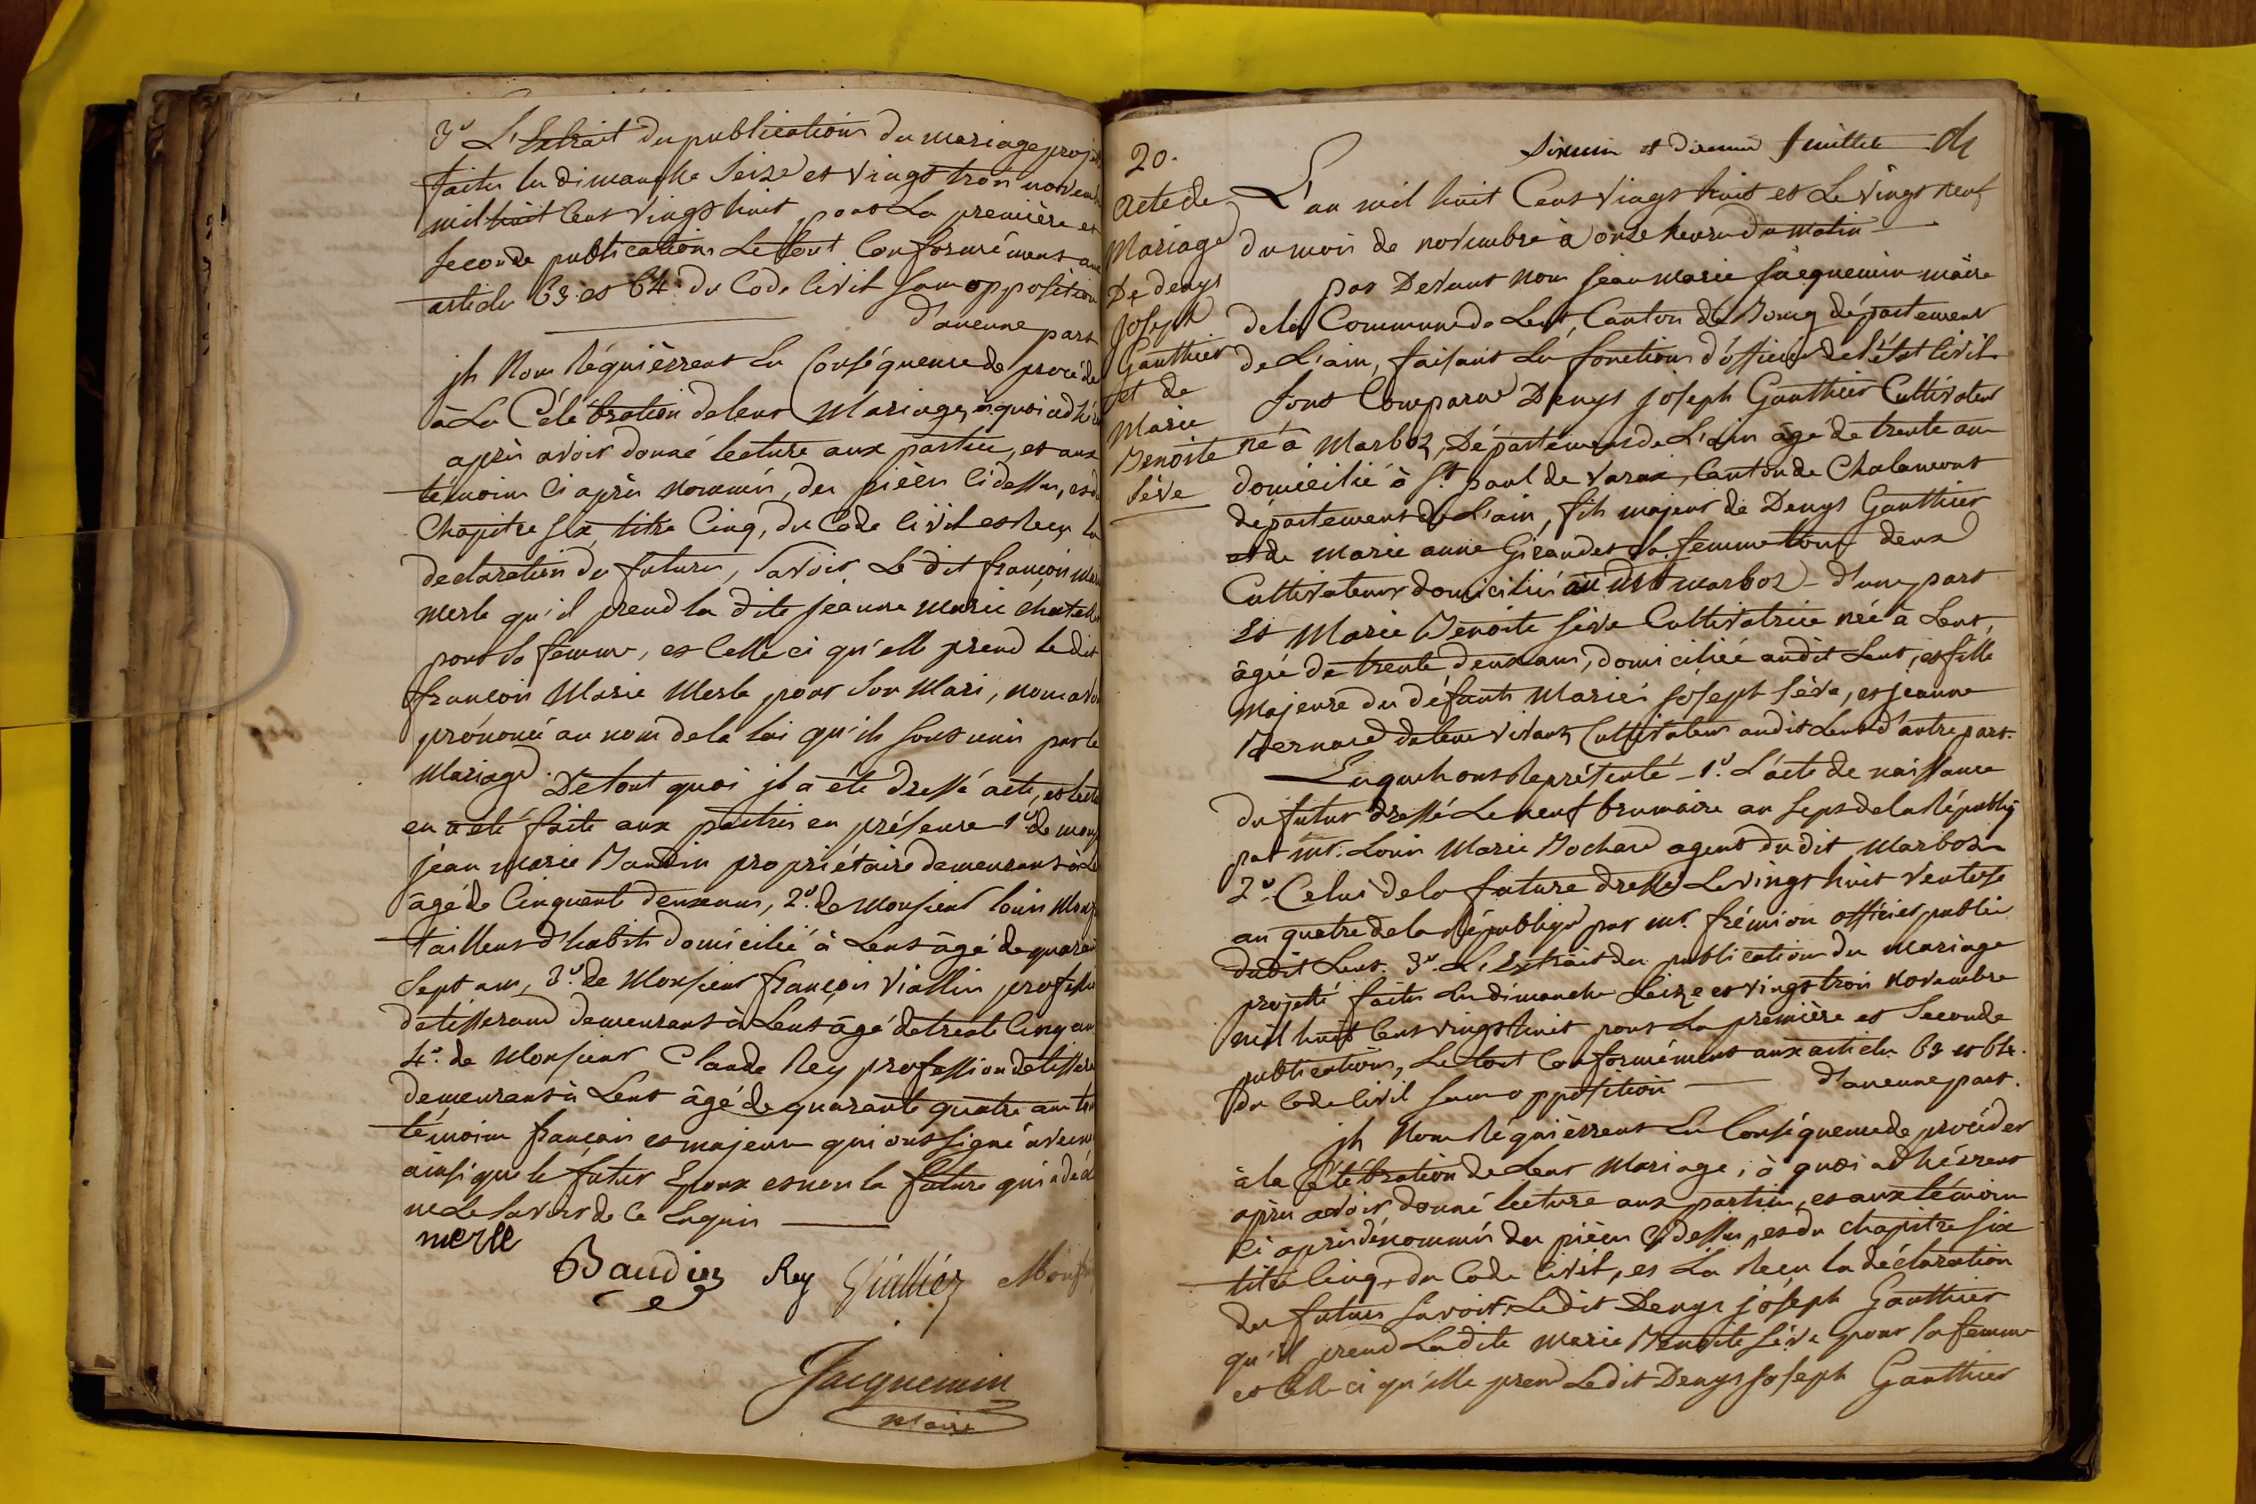 3° L'Extrait des publications du mariage projeté
faites les dimanches Seize et Vingt trois novembre
mil huit Cent Vingt huit pour La première et
Seconde publications Le tout Conformément aux
articles 63 et 64 du Code Civil sans opposition
d'aucune part
jls Nous Réquièrrent En Conséquence de procéder
à La Célébration de leur Mariage, à quoi adhérant
après avoir donné lecture aux parties, et aux
témoins Ci après nommés, des pièces Ci dessus, et du
Chapitre Six, titre Cinq, du Code Civil et Reçu la
declaration des futurs, Savoir Le dit françois marie
Merle qu'il prend la dite jeanne Marie
pour sa femme, et Celle ci qu'elle prend le dit
françois Marie Merle pour Son Mari, nous avons
prononcé au nom de la loi qu'ils sont unis par le
Mariage.
De tout quoi jl a été dressé acte, et lecture
en a été faite aux parties en présence 1° de mons
jean marie Baudin propriétaire demeurant à Lent
âgé de Cinquante deux ans, 2° de Monsieur louis
tailleur d'habits domicilié à Lent âgé de quarante
Sept ans, 3° de Monsieur françois Viallier profession
de tisserand demeurant à Lent âgé de trente Cinq ans
4° de Monsieur Claude Rey profession de tisserand
demeurant à Lent âgé de quarante quatre ans tous
témoins français et majeurs qui ont signé avec nous
ainsi que le futur Epoux et non la future qui a déclaré
ne Le Savoir de Ce Enquis
merle
Baudin Rey Vialliez
Jacquemin
Maire
Sixieme et Dixieme feuillet
20.
Acte de
Mariage
De denys
Joseph
Gauthier
et de
Marie
Benoite
Sève
L'an mil huit Cent Vingt huit et Le Vingt neuf
du mois de novembre à onze heures du Matin
par Devant nous jean marie Jacquemin maire
de la Commune de Lent, Canton de Bourg département
de L'ain, faisant Les fonctions d'officier de l'état Civil
Sont Comparus Denys joseph Gauthier Cultivateur
né à Marboz, Département de L'ain âgé de trente ans
domicilié à St paul de Varax, Canton de Chalamont
département de L'ain, fils majeur de Denys Gauthier
et de Marie anne Girandet sa femme tous deux
Cultivateurs domiciliés au dit marboz d'une part
Et Marie Benoite Sève Cultivatrice née à Lent,
âgée de trente deux ans, domiciliée audit Lent, et fille
Majeure des défunts Mariés joseph Sève, et jeanne
Bernard de leur vivant Cultivateurs audit Lent d'autre part.
Lesquels ont Représenté 1° L'acte de naissance
du futur dressé Le neuf brumaire an Sept de la Républiq
par mr. Louis Marie Bochard agent du dit Marboz
2° Celui de la future dressé Le vingt huit Ventose
an quatre de la République par mr. frémion officier public
dudit Lent. 3° L'Extrait des publications du Mariage
projetté faites Les dimanches Seize et vingt trois Novembre
mil huit Cent vingt huit pour La première et Seconde
publications, Le tout Conformément aux articles 63 et 64
du Code Civil sans opposition d'aucune part.
jls Nous Réquièrrent En Conséquence de procéder
à la Célébration de Leur Mariage, à quoi adhérrent
après avoir donné lecture aux parties, et aux témoins
Ci après dénommés des pièces Ci dessus, et du Chapitre Six
titre Cinq, du Code Civil, et La Reçu la déclaration
des futurs Savoir, Ledit Denys joseph Gauthier
qu'il prend Ladite Marie Benoite Sève pour sa femme
et Celle ci qu'elle prend Ledit Denys Joseph Gauthier